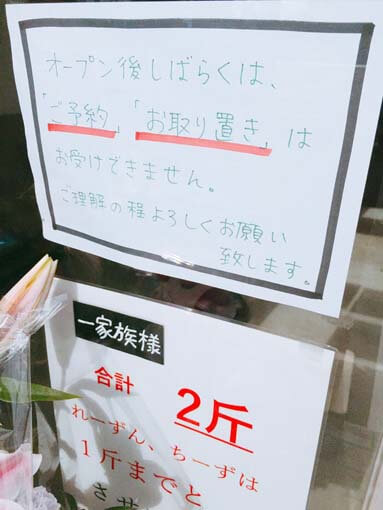 オープン後しばらくは、
「ご予約」「お取り置き」は
お受けできません。
ご理解の程よろしくお願い
致します。
一家族様
合計 2斤
れーずん、ちーずは
1斤までと
させ